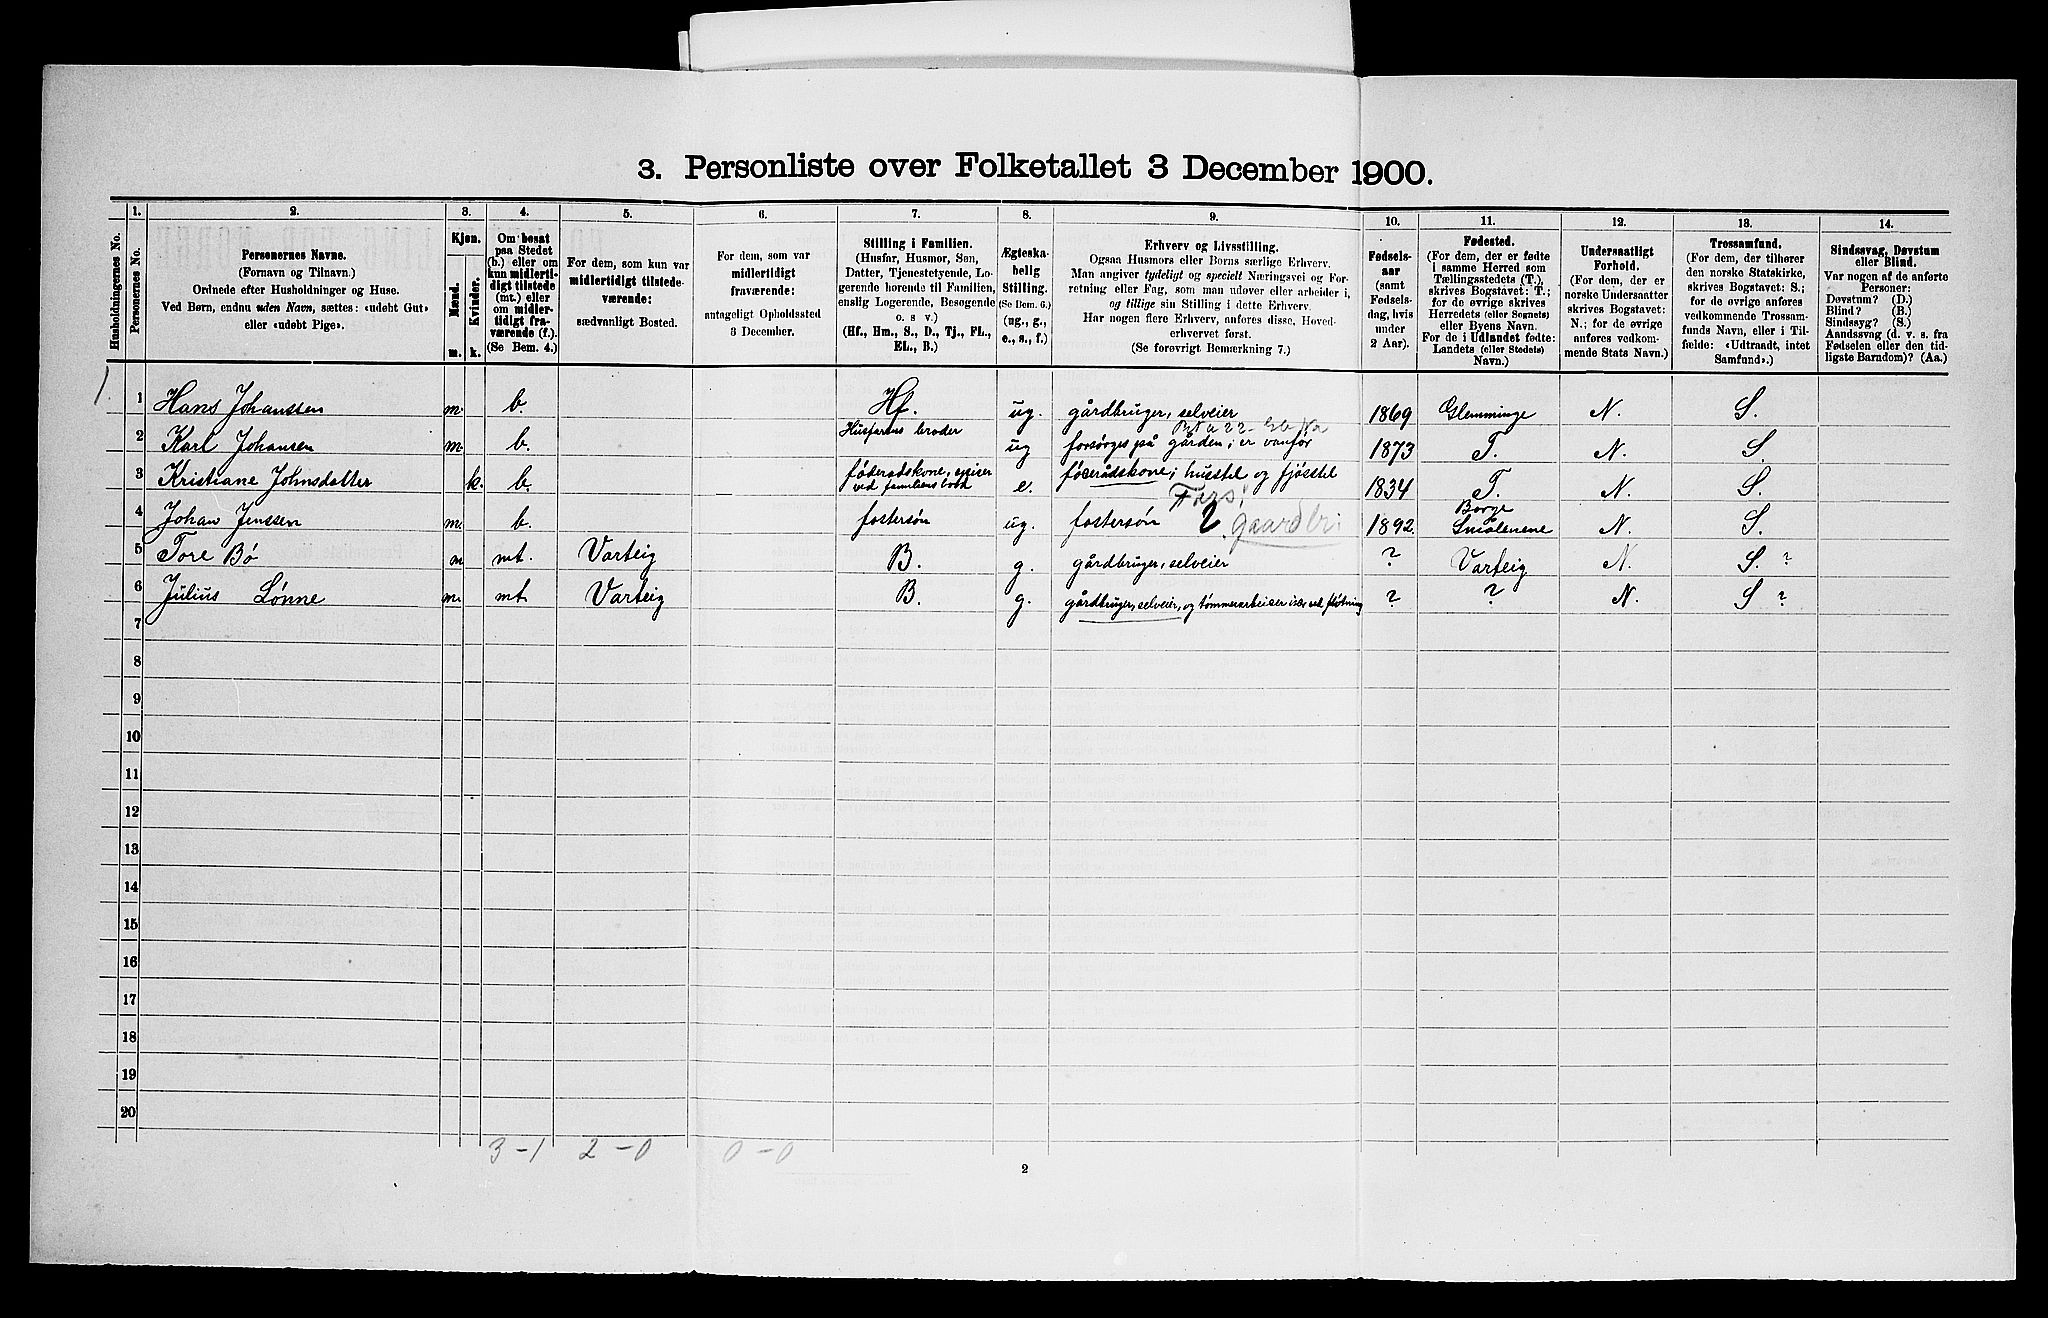 3. Personliste over Folketallet 3 December 1900.
Husholdningernes No.
1.
Personernes No.
2.
Personernes Navne.
(Fornavn og Tilnavn.)
Ordnede efter Husholdninger og Huse.
Ved Børn, endnu uden Navn, sættes: «udøbt Gut»
eller «udøbt Pige».
3.
Kjøn.
Mænd.
m.
Kvinder.
k.
4.
Om bosat
paa Stedet
(b.) eller om
kun midlerti-
digt tilstede
(mt.) eller
om midler-
tidigt fra-
værende (f.).
(Se Bem. 4.)
5.
For dem, som kun var
midlertidigt tilstede-
værende:
sædvanligt Bosted.
6.
For dem, som var
midlertidigt
fraværende:
antageligt Opholdssted
3 December.
7.
Stilling i Familien.
(Husfar, Husmor, Søn,
Datter, Tjenestetyende, Lo-
gerende hørende til Familien,
enslig Logerende, Besøgende
o. s v.)
(Hf., Hm., S., D., Tj., FL.,
EL., B.)
8.
Ægteska-
belig
Stilling.
(Se Bem. 6.)
(ug., g.,
e., s., f.)
9.
Erhverv og Livsstilling.
Ogsaa Husmors eller Børns særlige Erhverv.
Man angiver tydeligt og specielt Næringsvei og For-
retning eller Fag, som man udøver eller arbeider i,
og tillige sin Stilling i dette Erhverv.
Har nogen flere Erhverv, anføres disse, Hoved-
erhvervet først.
(Se forøvrigt Bemærkning 7.)
10.
Fødsels-
aar
(samt
Fødsels-
dag, hvis
under
2 Aar).
11.
Fødested.
(For dem, der er fødte
i samme Herred som
Tællingsstedets (T.),
skrives Bogstavet: T.;
for de øvrige skrives
Herredets (eller Sognets)
eller Byens Navn.
For de i Udlandet fødte:
Landets (eller Stedets)
Navn.)
12.
Undersaatligt
Forhold.
(For dem, der er
norske Undersaatter
skrives Bogstavet:
N.; for de øvrige
anføres vedkom-
mende Stats Navn.)
13.
Trossamfund.
(For dem, der tilhører
den norske Statskirke,
skrives Bogstavet: S.;
for de øvrige anføres
vedkommende Trossam-
funds Navn, eller i Til-
fælde: «Udtraadt, intet
Samfund».)
14.
Sindssvag, Døvstum
eller Blind.
Var nogen af de anførte
Personer:
Døvstum? (D.)
Blind? (B.)
Sindssyg? (S.)
Aandssvag (d. v. s. fra
Fødselen eller den tid-
ligste Barndom)? (Aa.)
1. 1 Hans Johanssen m. b. Hf. ug. gårdbruger, selveier 1869 Glemminge N. S.
2 Karl Johansen m. b. Husfarens broder ug forsørges på gården; er vanfør 1873 T. N. S.
3 Kristiane Johnsdatter k. b. føderadskone, spiser
ved familiens bord e. føderådskone; husstel og fjøsstel 1834 T. N. S.
Fors.
4 Johan Jenssen m. b. fostersøn ug. fostersøn gaardbr. 1892. Borge
Smålenene N. S.
5 Tore Bø m mt. Varteig B. g. gårdbruger, selveier ? Varteig N. S. ?
6 Julius Lønne m. mt. Varteig B. g. gårdbruger, selveier, og tømmerarbeider især ved fløtning ? ? N. S ?
7
8
9
10
11
12
13
14
15
16
17
18
19
20
3 - 1 2 - 0 0 - 0
2